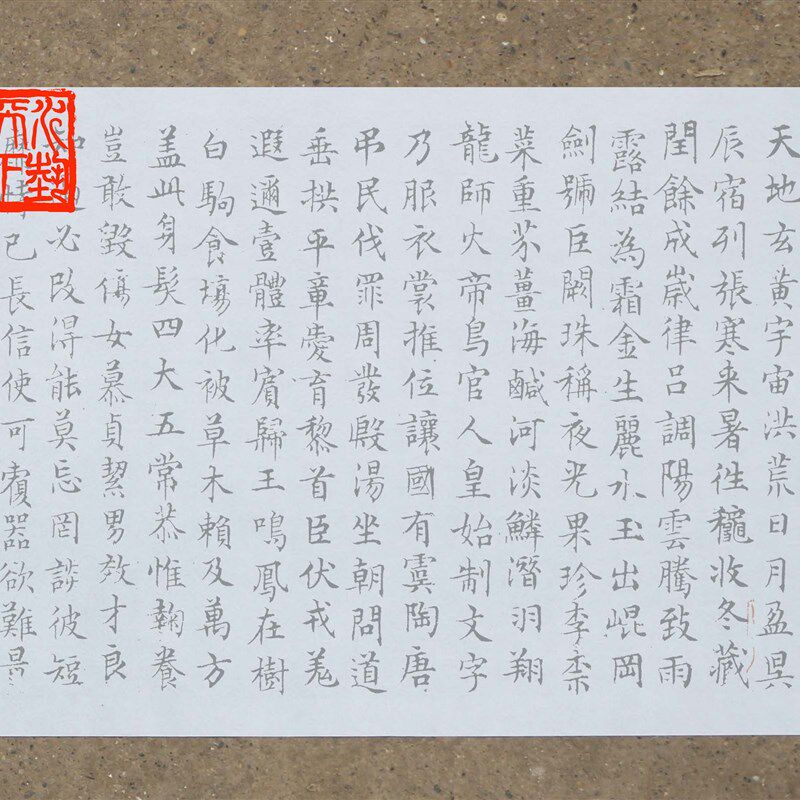 天地玄黄宇宙洪荒日月盈昃
辰宿列張寒来暑往龝收冬藏
閏餘成歲律呂調陽雲騰致雨
露結為霜金生麗水玉出崐岡
劍號巨闕珠稱夜光果珍李柰
菜重芥薑海鹹河淡鱗潛羽翔
龍師火帝鳥官人皇始制文字
乃服衣裳推位讓國有虞陶唐
弔民伐罪周發殷湯坐朝問道
垂拱平章愛育黎首臣伏戎羌
遐邇壹體率賓歸王鳴鳳在樹
白駒食場化被草木賴及萬方
盖此身髮四大五常恭惟鞠養
豈敢毀傷女慕貞絜男效才良
知過必改得能莫忘罔談彼短
靡恃己長信使可覆器欲難量